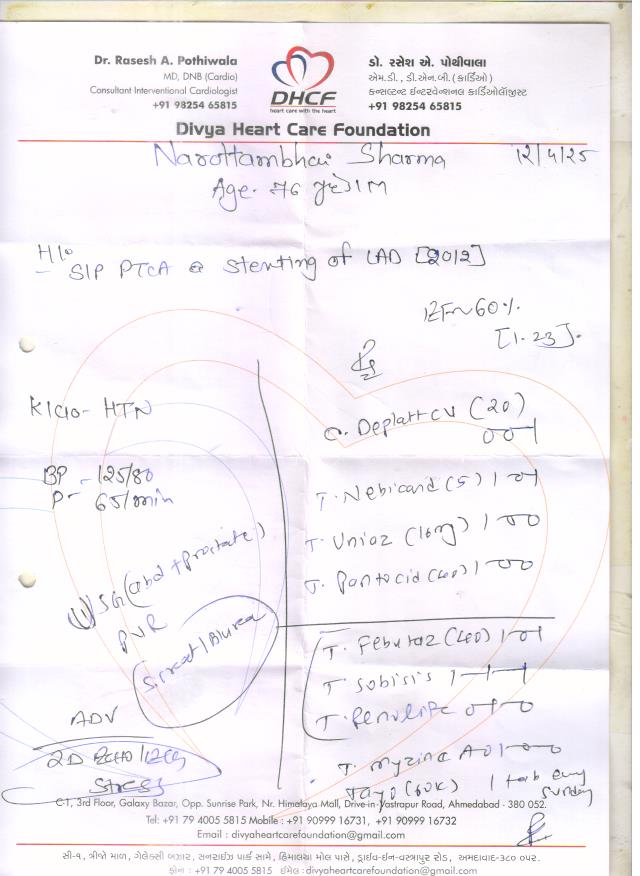 Dr. Rasesh A. Pothiwala
MD, DNB (Cardio)
Consultant Interventional Cardiologist
+91 98254 65815
DHCF
heart care with the heart
ડો. રસેશ એ. પોથીવાલા
એમ.ડી., ડી.એન.બી. (કાર્ડિઓ)
કન્સલ્ટન્ટ ઈન્ટરવેન્શનલ કાર્ડિઓલૉજીસ્ટ
+91 98254 65815
Divya Heart Care Foundation
Narottambhai Sharma 12/4/25
Age. 76 yrs/M
H/o
S/P PTCA stenting of LAD [2012]
EF~60%
[1.23].
K/C/O- HTN
BP - 125/80
P- 65/min
USG (abd + Prostate)
PVR
S. creat / B. urea
ADV
2D ECHO/ECG
Stress
C. Deplatt CV (20)
0-0-1
T. Nebicard (5) 1-0-1
T. Uniaz (16mg) 1-0-0
T. Pantocid (40) 1-0-0
T. Febutaz (40) 1-0-1
T. Sobisis 1-1-1
T. Renolife 0-1-0
T. Myzina A 1-0-0
Tayo (60K) 1 tab every Sunday
C-1, 3rd Floor, Galaxy Bazar, Opp. Sunrise Park, Nr. Himalaya Mall, Drive-in-Vastrapur Road, Ahmedabad - 380 052.
Tel: +91 79 4005 5815 Mobile : +91 90999 16731, +91 90999 16732
Email : divyaheartcarefoundation@gmail.com
સી-૧, ત્રીજો માળ, ગેલેક્સી બઝાર, સનરાઈઝ પાર્ક સામે, હિમાલયા મોલ પાસે, ડ્રાઈવ-ઈન-વસ્ત્રાપુર રોડ, અમદાવાદ-૩૮૦ ૦૫૨.
ફોન : +91 79 4005 5815 ઈમેલ : divyaheartcarefoundation@gmail.com